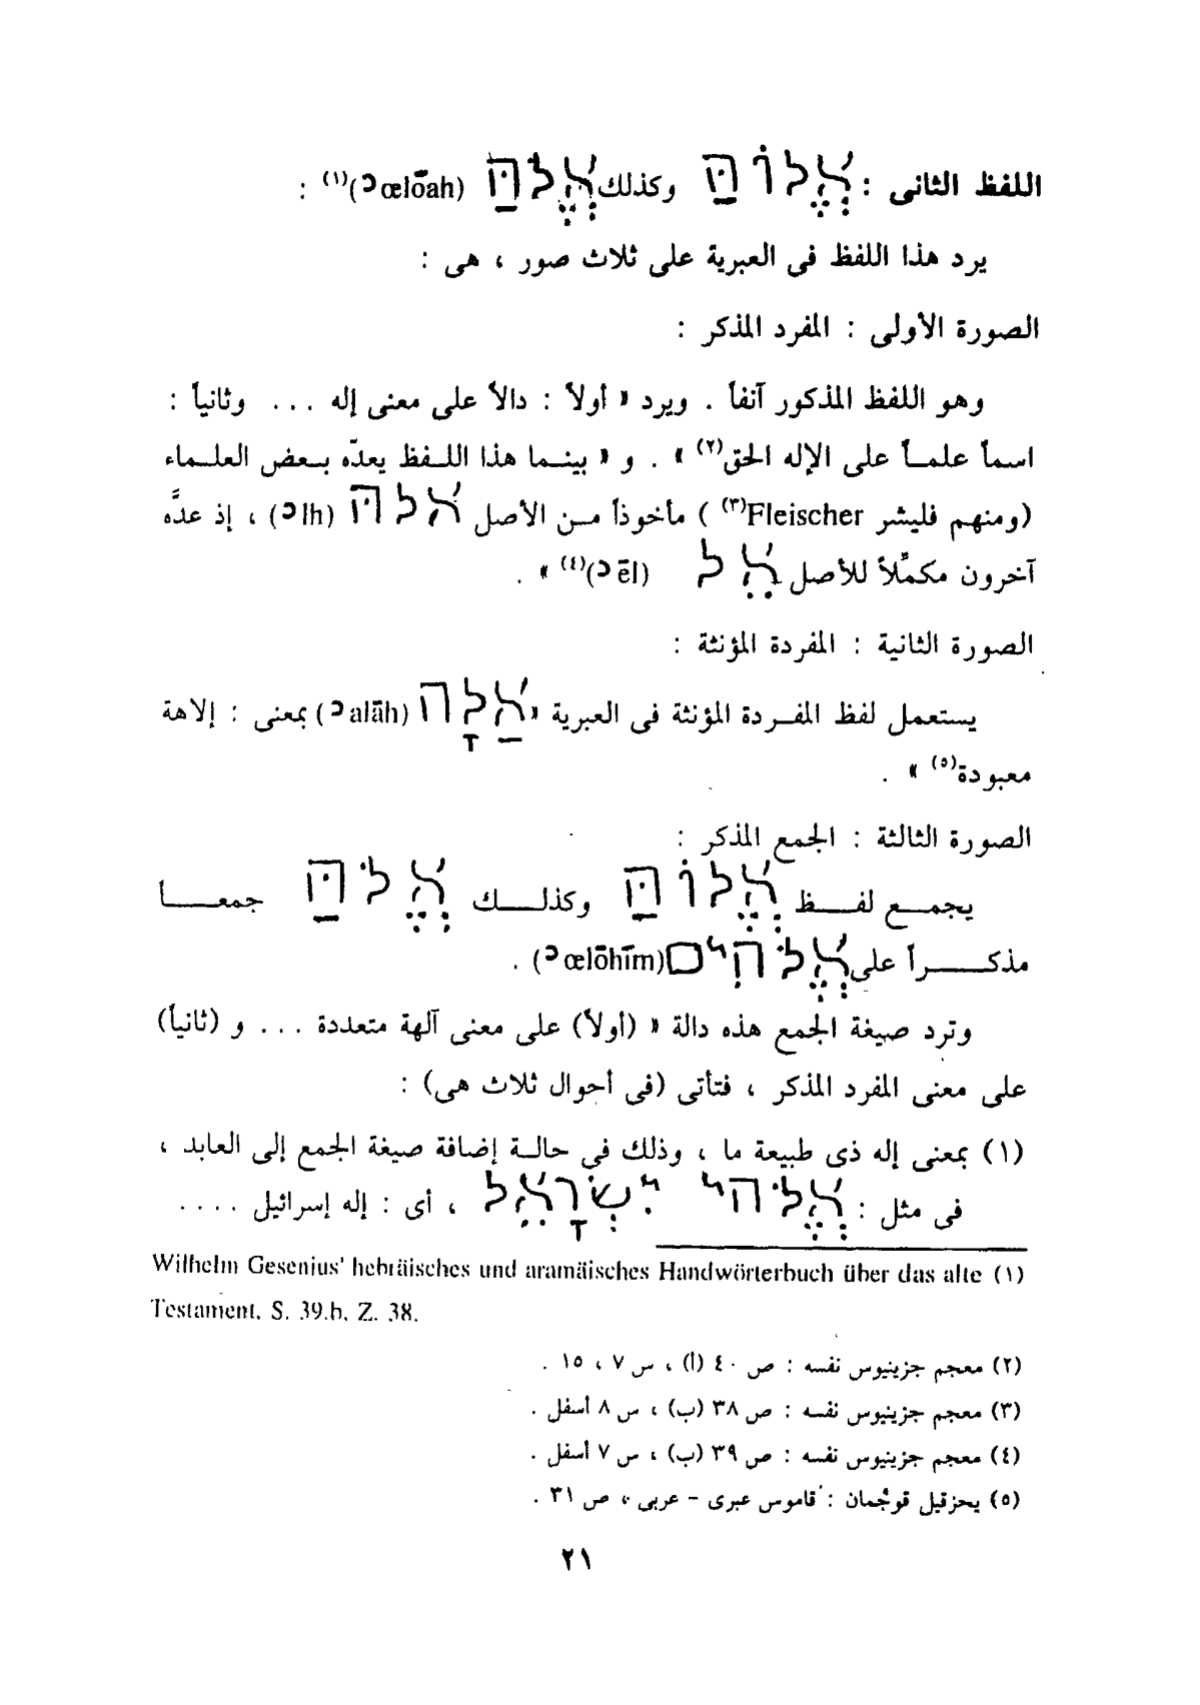 اللفظ الثانى : אֱלוֹהַּ وكذلك אֱלֹהַּ (ɔœlōah)(١) :
يرد هذا اللفظ فى العبرية على ثلاث صور ، هى :
الصورة الأولى : المفرد المذكر :
وهو اللفظ المذكور آنفاً . ويرد « أولاً : دالاً على معنى إله ... وثانياً :
اسماً علمـاً على الإله الحق(٢) » . و « بينـما هذا اللـفظ يعدّه بـعض العلـماء
(ومنهم فليشر Fleischer(٣) ) مأخوذاً مـن الأصل אלהּ (ɔlh) ، إذ عدَّه
آخرون مكمِّلاً للأصل אֵל (ɔēl)(٤) » .
الصورة الثانية : المفردة المؤنثة :
يستعمل لفظ المفـردة المؤنثة فى العبرية « אַלָה (ɔalāh) بمعنى : إلاهة
معبودة(٥) » .
الصورة الثالثة : الجمع المذكر :
يجمـع لفـظ אֱלוֹהַּ وكذلـك אֱלֹהַּ جمعـاً
مذكـراً على אֱלֹהִים (ɔœlōhīm) .
وترد صيغة الجمع هذه دالة « (أولاً) على معنى آلهة متعددة ... و (ثانياً)
على معنى المفرد المذكر ، فتأتى (فى أحوال ثلاث هى) :
(١) بمعنى إله ذى طبيعة ما ، وذلك فى حالـة إضافة صيغة الجمع إلى العابد ،
فى مثل : אֱלֹהי יִשְׂרָאֵל ، أى : إله إسرائيل ....
(١) Wilhelm Gesenius' hebräisches und aramäisches Handwörterbuch über das alte
Testament. S. 39.b. Z. 38.
(٢) معجم جزينيوس نفسه : ص ٤٠ (أ) ، س ٧ ، ١٥ .
(٣) معجم جزينيوس نفسه : ص ٣٨ (ب) ، س ٨ أسفل .
(٤) معجم جزينيوس نفسه : ص ٣٩ (ب) ، س ٧ أسفل .
(٥) يحزقيل قوچمان : قاموس عبرى - عربى ، ص ٣١ .
٢١